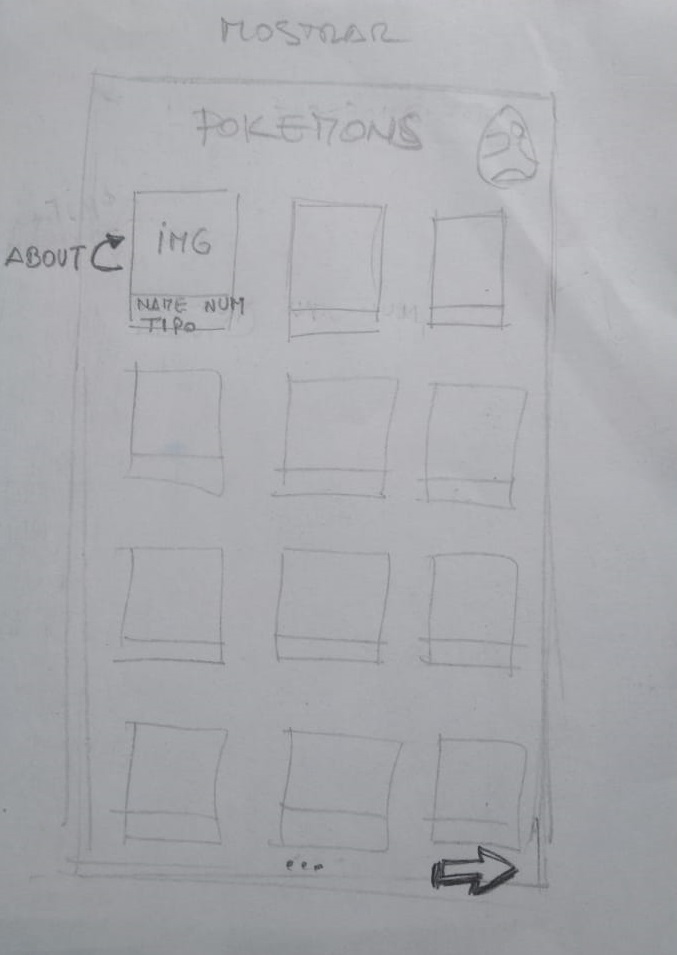 MOSTRAR
POKEMONS
IMG
ABOUT
NAME NUM
TIPO
...